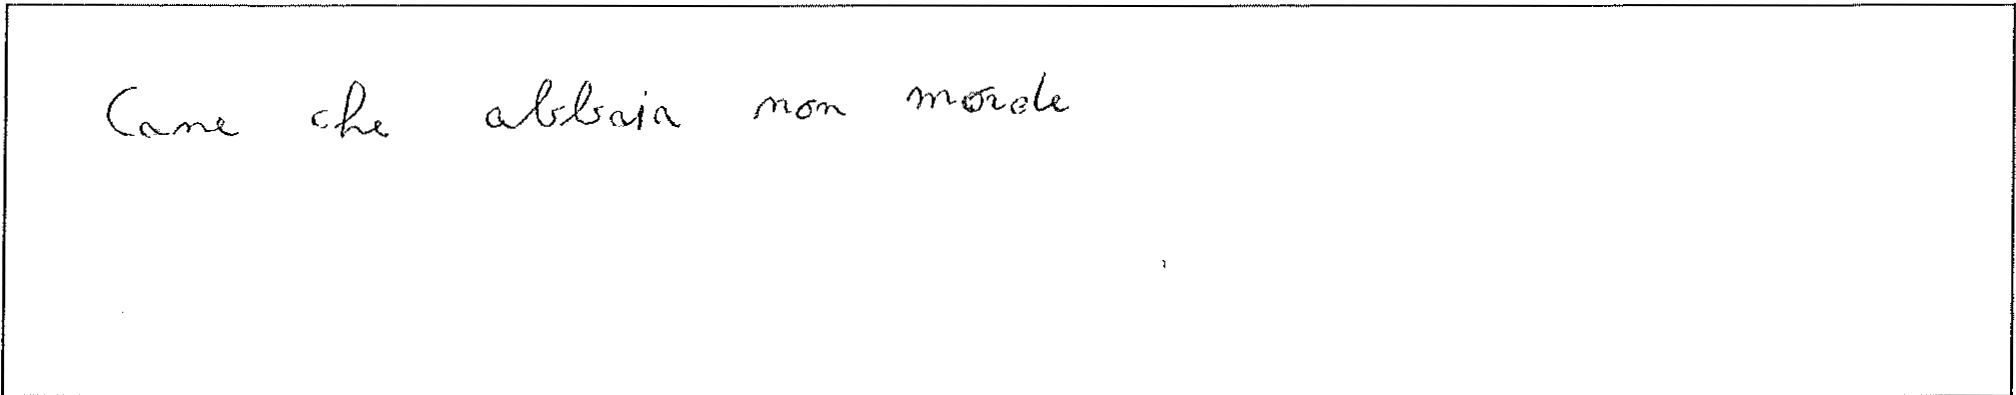 Cane che abbaia non morde